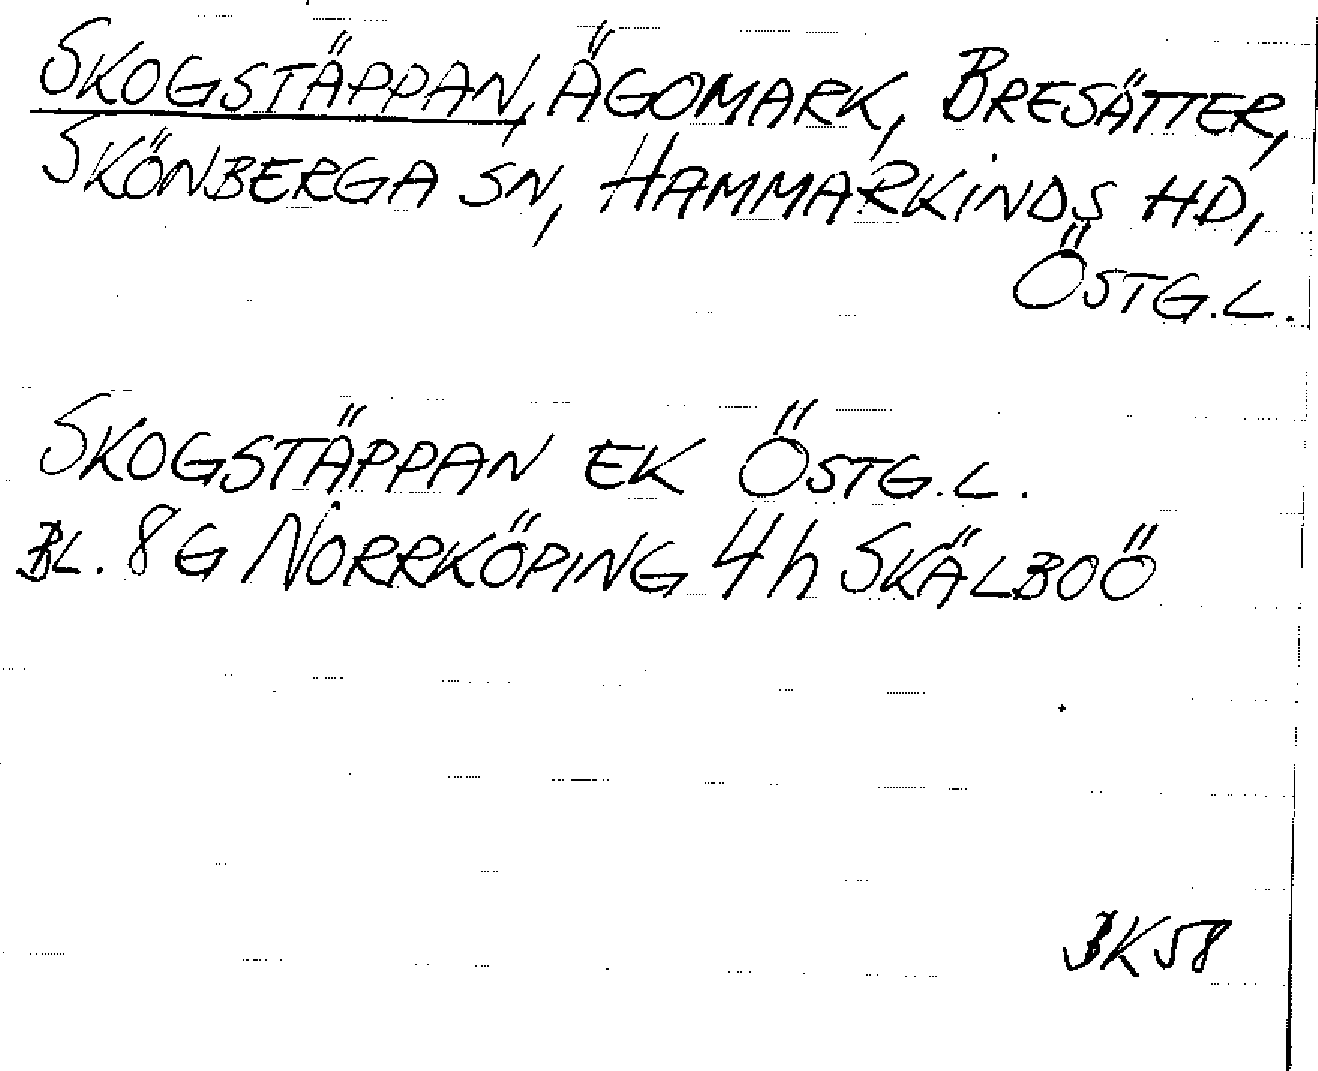 SKOGSTÄPPAN, ÄGOMARK, BRESÄTTER,
SKÖNBERGA SN, HAMMARKINDS HD,
ÖSTG.L.
SKOGSTÄPPAN EK ÖSTG.L.
BL. 8 G NORRKÖPING 4h SKÄLBOÖ
BK58